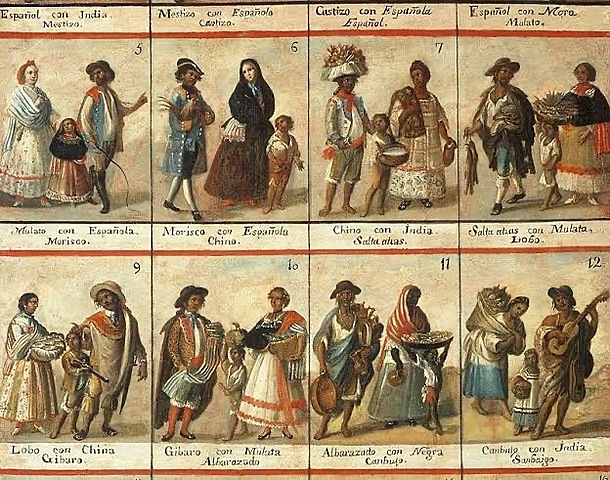 Español con India.
Mestizo.
Mestizo con Española
Castizo.
Castizo con Española
Español.
Español con Negra
Mulato.
5
6
7
Mulato con Española.
Morisco.
Morisco con Española
Chino.
Chino con India.
Salta atras.
Salta atras con Mulata.
Lobo.
9
10
11
12
Lobo con China
Gibaro.
Gibaro con Mulata
Albarazado
Albarazado con Negra
Canbujo.
Canbujo con India.
Sanbaigo.